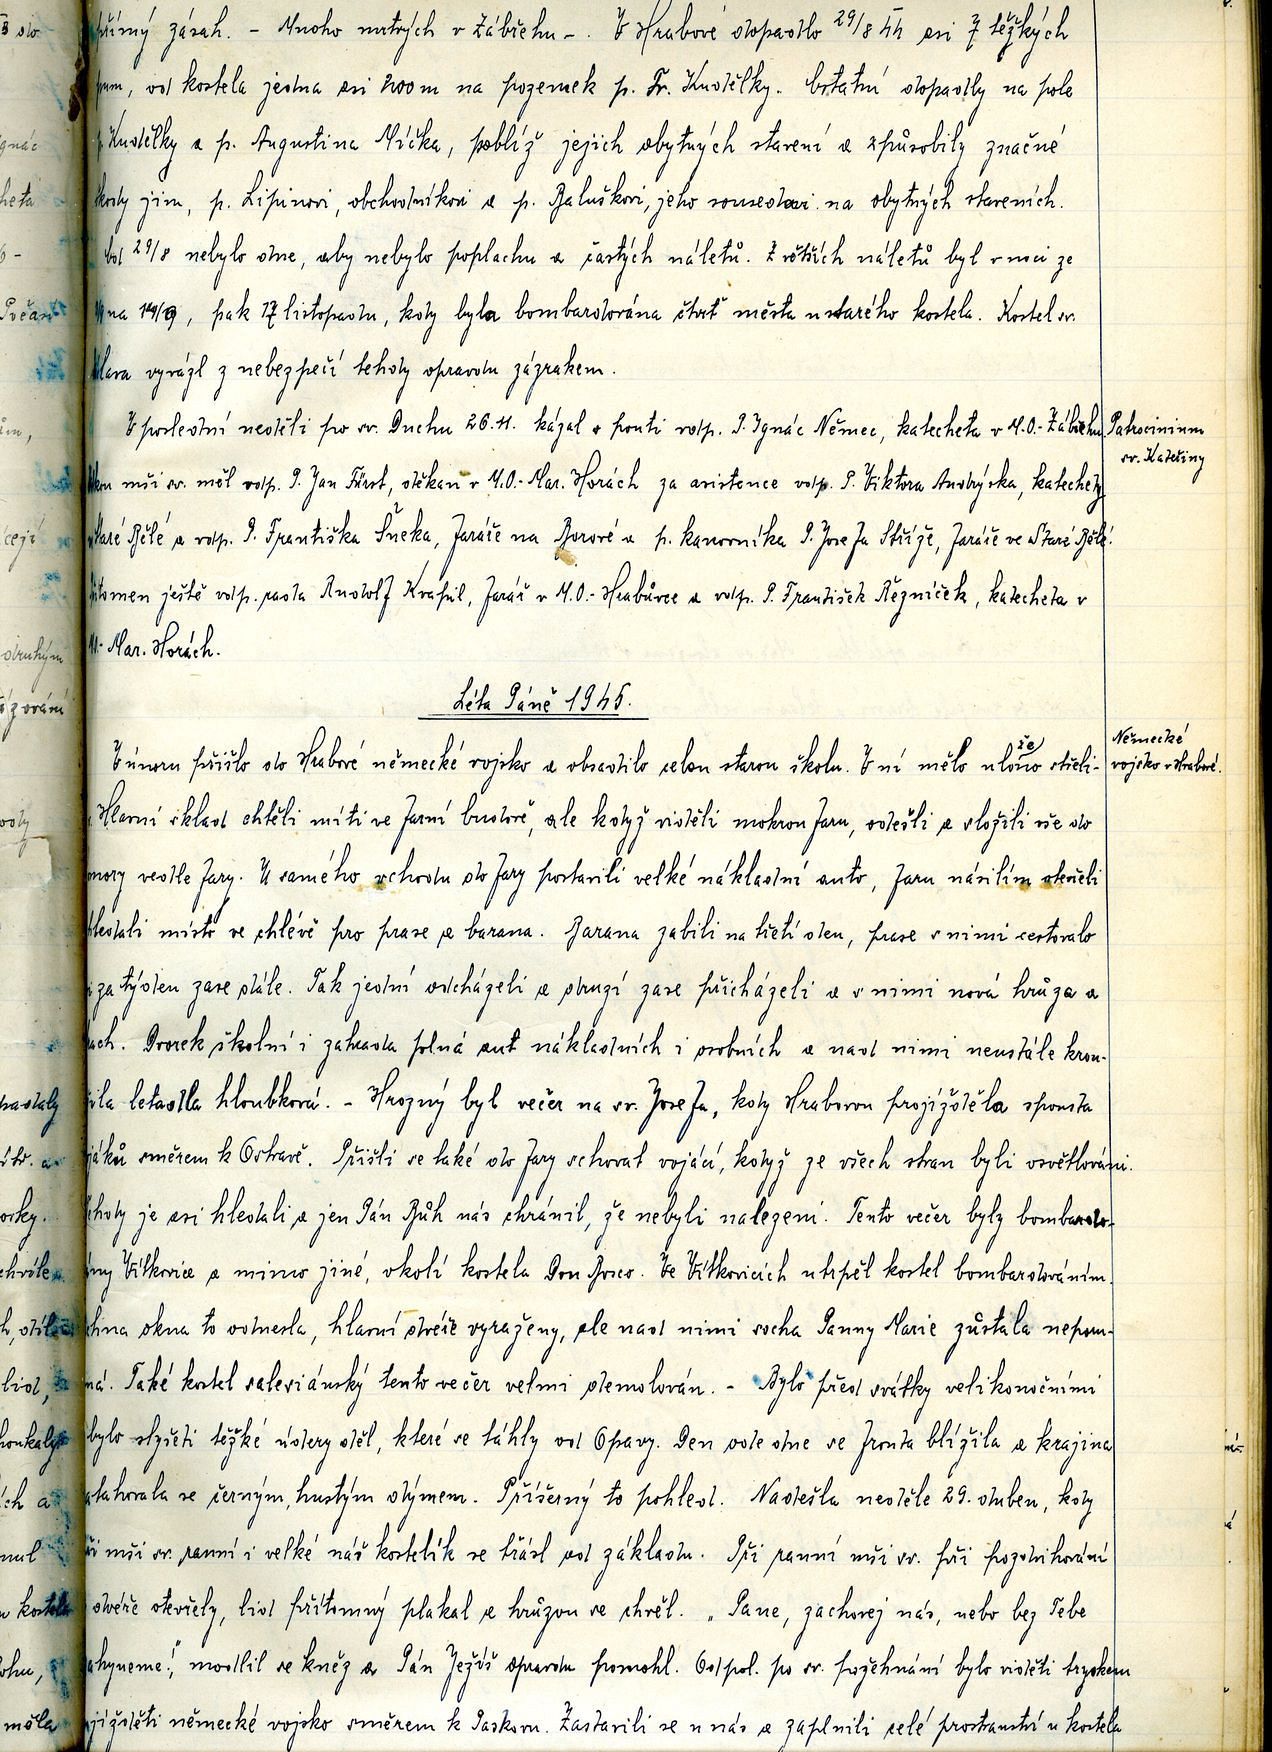 přímý zásah. – Mnoho mrtvých v Zábřehu –. V Hrabové dopadlo 29/8 44 asi 7 těžkých
pum, od kostela jedna asi 200 m na pozemek p. Fr. Kudělky. Ostatní dopadly na pole
p. Kudělky a p. Augustina Míčka, poblíž jejich obytných stavení a způsobily značné
škody jim, p. Lipinovi, obchodníkovi a p. Baluškovi, jeho sousedovi na obytných staveních.
Od 29/8 nebylo dne, aby nebylo poplachu a častých náletů. Z větších náletů byl v noci ze
na 14/9, pak 17 listopadu, kdy byla bombardována čtvrť města u starého kostela. Kostel sv.
vyvázl z nebezpečí tehdy opravdu zázrakem.
V poslední neděli po sv. Duchu 26.11. kázal o pouti vdp. P. Ignác Němec, katecheta v M.O.- Zábřehu
Patrocinium
sv. Kateřiny
mši sv. měl vdp. P. Jan Fürst, děkan v M.O.- Mar. Horách za asistence vdp. P. Viktora Andrýska, katechety
Staré Bělé a vdp. P. Františka Šneka, faráře na Borové a p. kanovníka P. Josefa Stříže, faráře ve Staré Bělé.
Přítomen ještě vdp. rada Rudolf Kraful, farář v M.O.- Hrabůvce a vdp. P. František Řezníček, katecheta v
M.O.- Mar. Horách.
Léta Páně 1945.
V únoru přišlo do Hrabové německé vojsko a obsadilo celou starou školu. V ní mělo uloženo střeli-
Německé
vojsko v Hrabové.
Hlavní sklad chtěli míti ve farní budově, ale když viděli mokrou faru, odešli a složili vše do
komory vedle fary. U samého vchodu do fary postavili velké nákladní auto, faru násilím otevřeli
hledali místo ve chlévě pro prase a barana. Barana zabili na třetí den, prase s nimi cestovalo
za týden zase dále. Tak jedni odcházeli a druzí zase přicházeli a s nimi nová hrůza a
strach. Dvorek školní i zahrada plná aut nákladních i osobních a nad nimi neustále krou-
žila letadla hloubková. – Hrozný byl večer na sv. Josefa, kdy Hrabovou projížděla spousta
vojáků směrem k Ostravě. Přišli se také do fary schovat vojáci, když ze všech stran byli osvětlováni.
Tehdy je asi hledali a jen Pán Bůh nás chránil, že nebyli nalezeni. Tento večer byly bombardo-
vány Vítkovice a mimo jiné, okolí kostela Don Bosco. Ve Vítkovicích utrpěl kostel bombardováním.
okna to odnesla, hlavní dveře vyraženy, ale nad nimi socha Panny Marie zůstala nepom-
ná. Také kostel salesiánský tento večer velmi demolován. – Bylo před svátky velikonočními
bylo slyšeti těžké údery děl, které se táhly od Opavy. Den ode dne se fronta blížila a krajina
zatahovala se černým, hustým dýmem. Příšerný to pohled. Nadešla neděle 29. duben, kdy
při mši sv. ranní i velké náš kostelík se třásl od základu. Při ranní mši sv. při pozdvihování
dveře otevřely, lid přítomný plakal a hrůzou se chvěl. „Pane, zachovej nás, nebo bez Tebe
zahyneme!", modlil se kněz a Pán Ježíš opravdu pomohl. Odpol. po sv. požehnání bylo viděti tryskem
ujížděti německé vojsko směrem k Paskovu. Zastavili se u nás a zaplnili celé prostranství u kostela